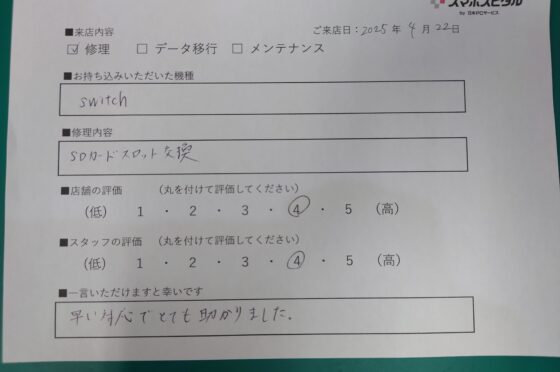 スマホスピタル
by 日本PCサービス
■来店内容
ご来店日：2025 年 4 月 22日
☑ 修理 □ データ移行 □ メンテナンス
■お持ち込みいただいた機種
switch
■修理内容
SDカードスロット交換
■店舗の評価 （丸を付けて評価してください）
（低） 1 ・ 2 ・ 3 ・ 4 ・ 5 （高）
■スタッフの評価 （丸を付けて評価してください）
（低） 1 ・ 2 ・ 3 ・ 4 ・ 5 （高）
■一言いただけますと幸いです
早い対応でとても助かりました。